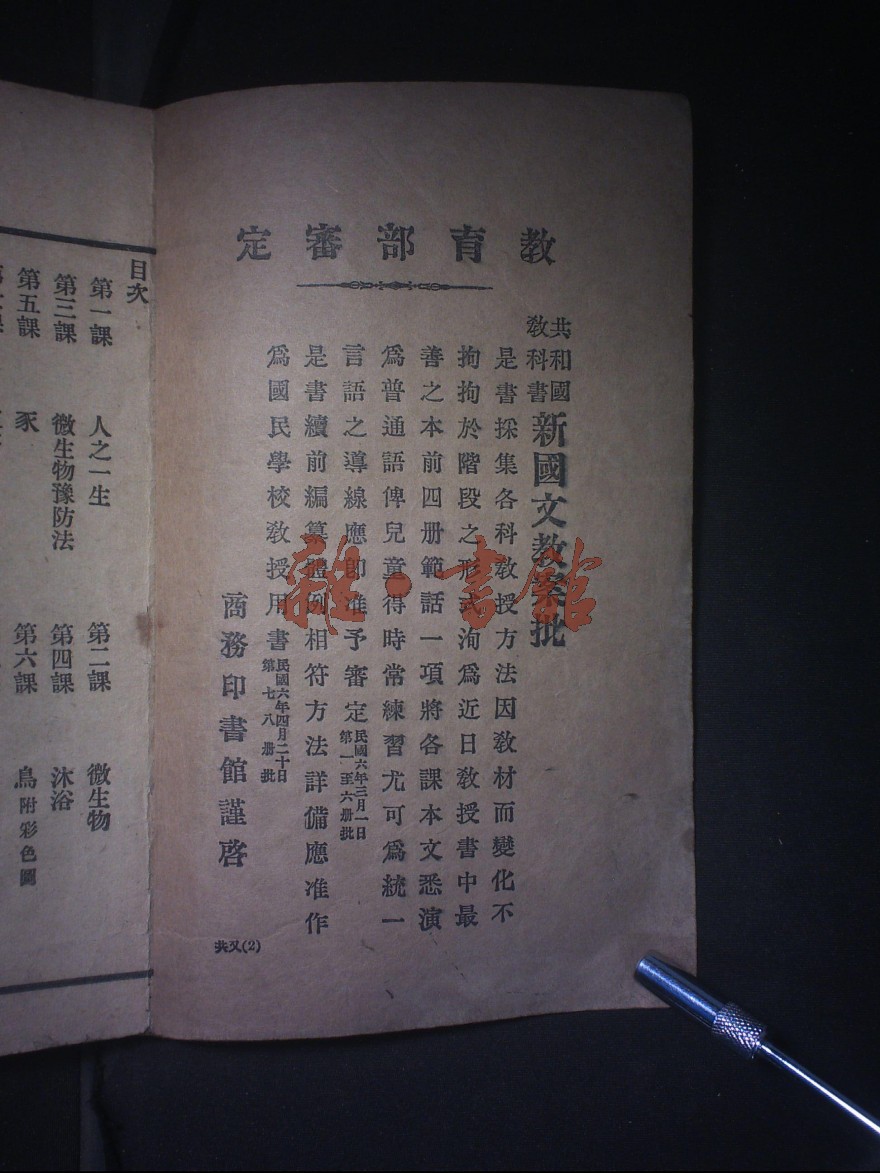 教育部審定
共和國教科書
新國文教案批
是書採集各科教授方法因教材而變化不
拘拘於階段之形式洵爲近日教授書中最
善之本前四册範話一項將各課本文悉演
爲普通語俾兒童得時常練習尤可爲統一
言語之導線應卽准予審定民國六年三月一日第一至六册批
是書續前編纂體例相符方法詳備應准作
爲國民學校教授用書民國六年四月二十日第七八册批
商務印書館謹啓
共又(2)
雜·書館
目次
第一課 人之一生 第二課 微生物
第三課 微生物豫防法 第四課 沐浴
第五課 豕 第六課 鳥附彩色圖